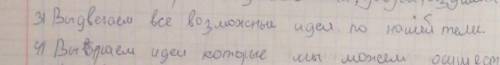 3) Выдвегаем все возможные идеи по нашей теме.
4) Выбираем идеи которые мы можем осущест